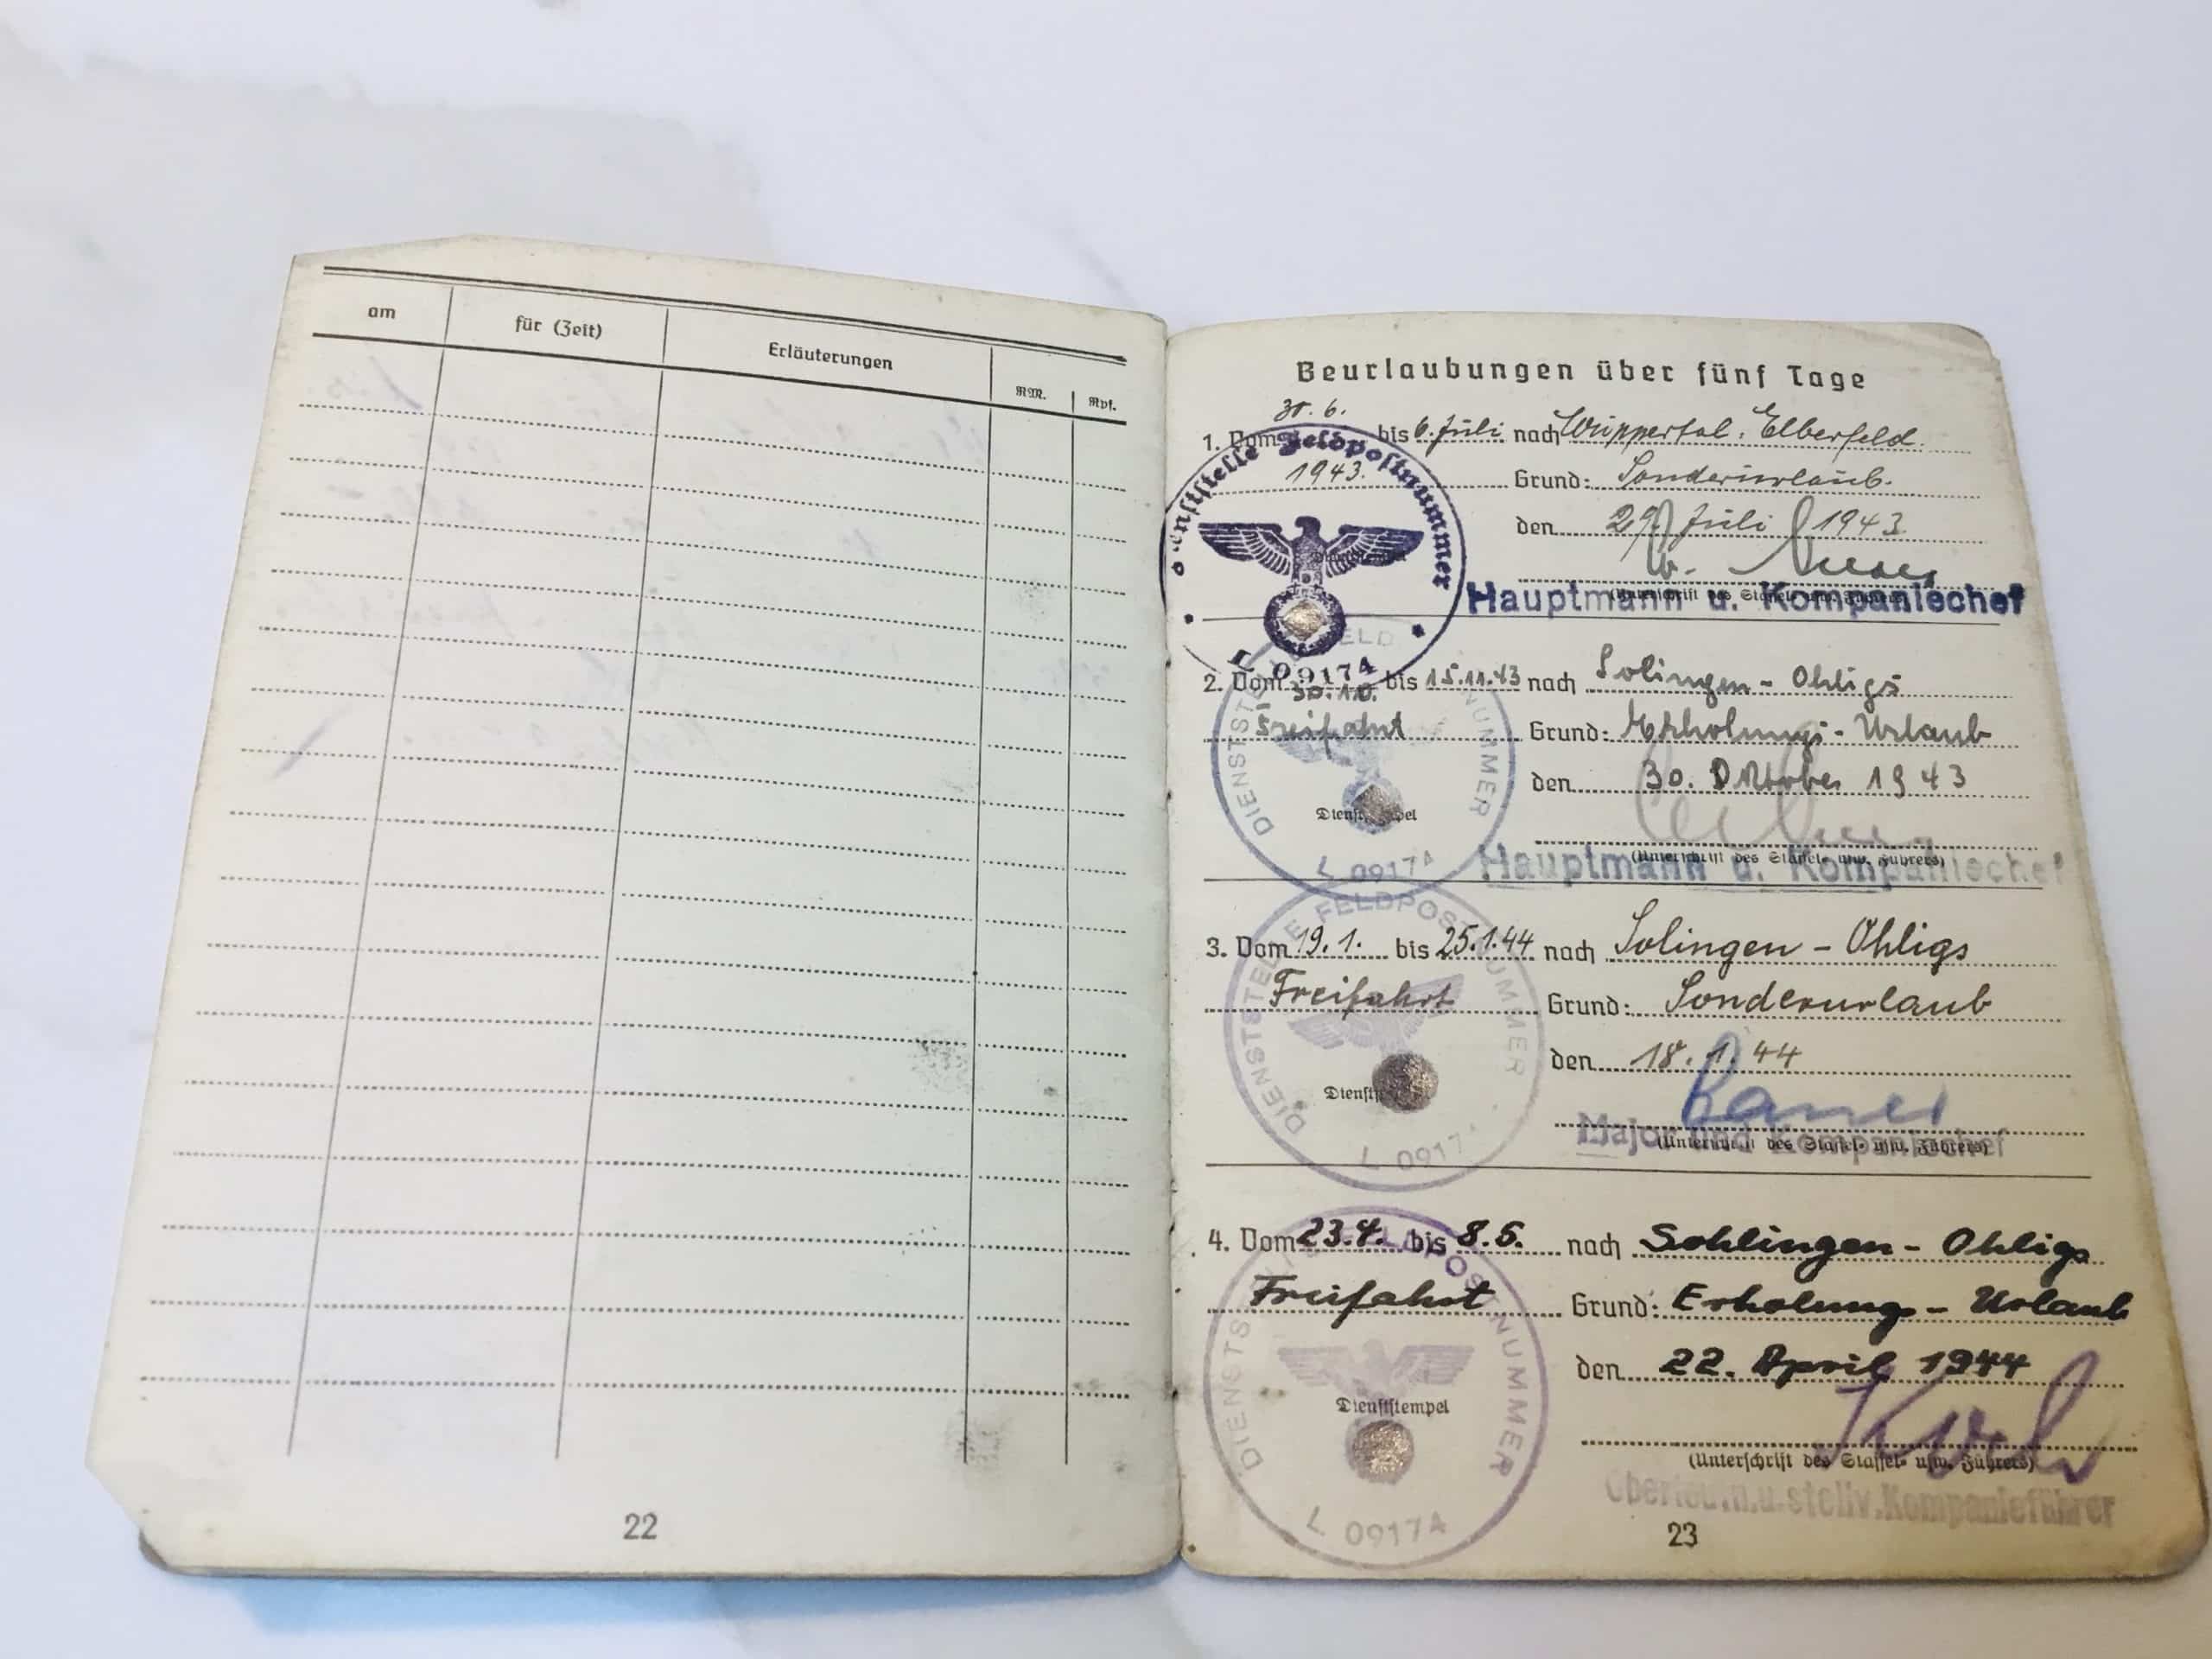 am für (Zeit) Erläuterungen RM. Rpf.
22
Beurlaubungen über fünf Tage
30. 6.
1. Vom bis 6. Juli nach Wuppertal. Elberfeld.
1943. Grund: Sonderurlaub.
Dienststelle Feldpostnummer
L 09174
den 29. Juli 1943.
Hauptmann u. Kompaniechef
2. Vom 30.10. bis 15.11.43 nach Solingen - Ohligs
Freifahrt Grund: Erholungs - Urlaub
den 30. Oktober 1943
Dienststempel
(Unterschrift des Staffel- usw. Führers)
Hauptmann u. Kompaniechef
NUMMER
L 09174
3. Vom 19.1. bis 25.1.44 nach Solingen - Ohligs
Freifahrt Grund: Sonderurlaub
den 18.1.44
DIENSTSTELLE FELDPOSTNUMMER
L 0917
(Unterschrift des Staffel- usw. Führers)
Major und Kompaniechef
4. Vom 23.4. bis 8.5. nach Sohlingen - Ohligs
Freifahrt Grund: Erholungs - Urlaub
den 22. April 1944
Dienststempel
NUMMER
L 09174
(Unterschrift des Staffel- usw. Führers)
Oberleutn.u.stellv.Kompanieführer
23